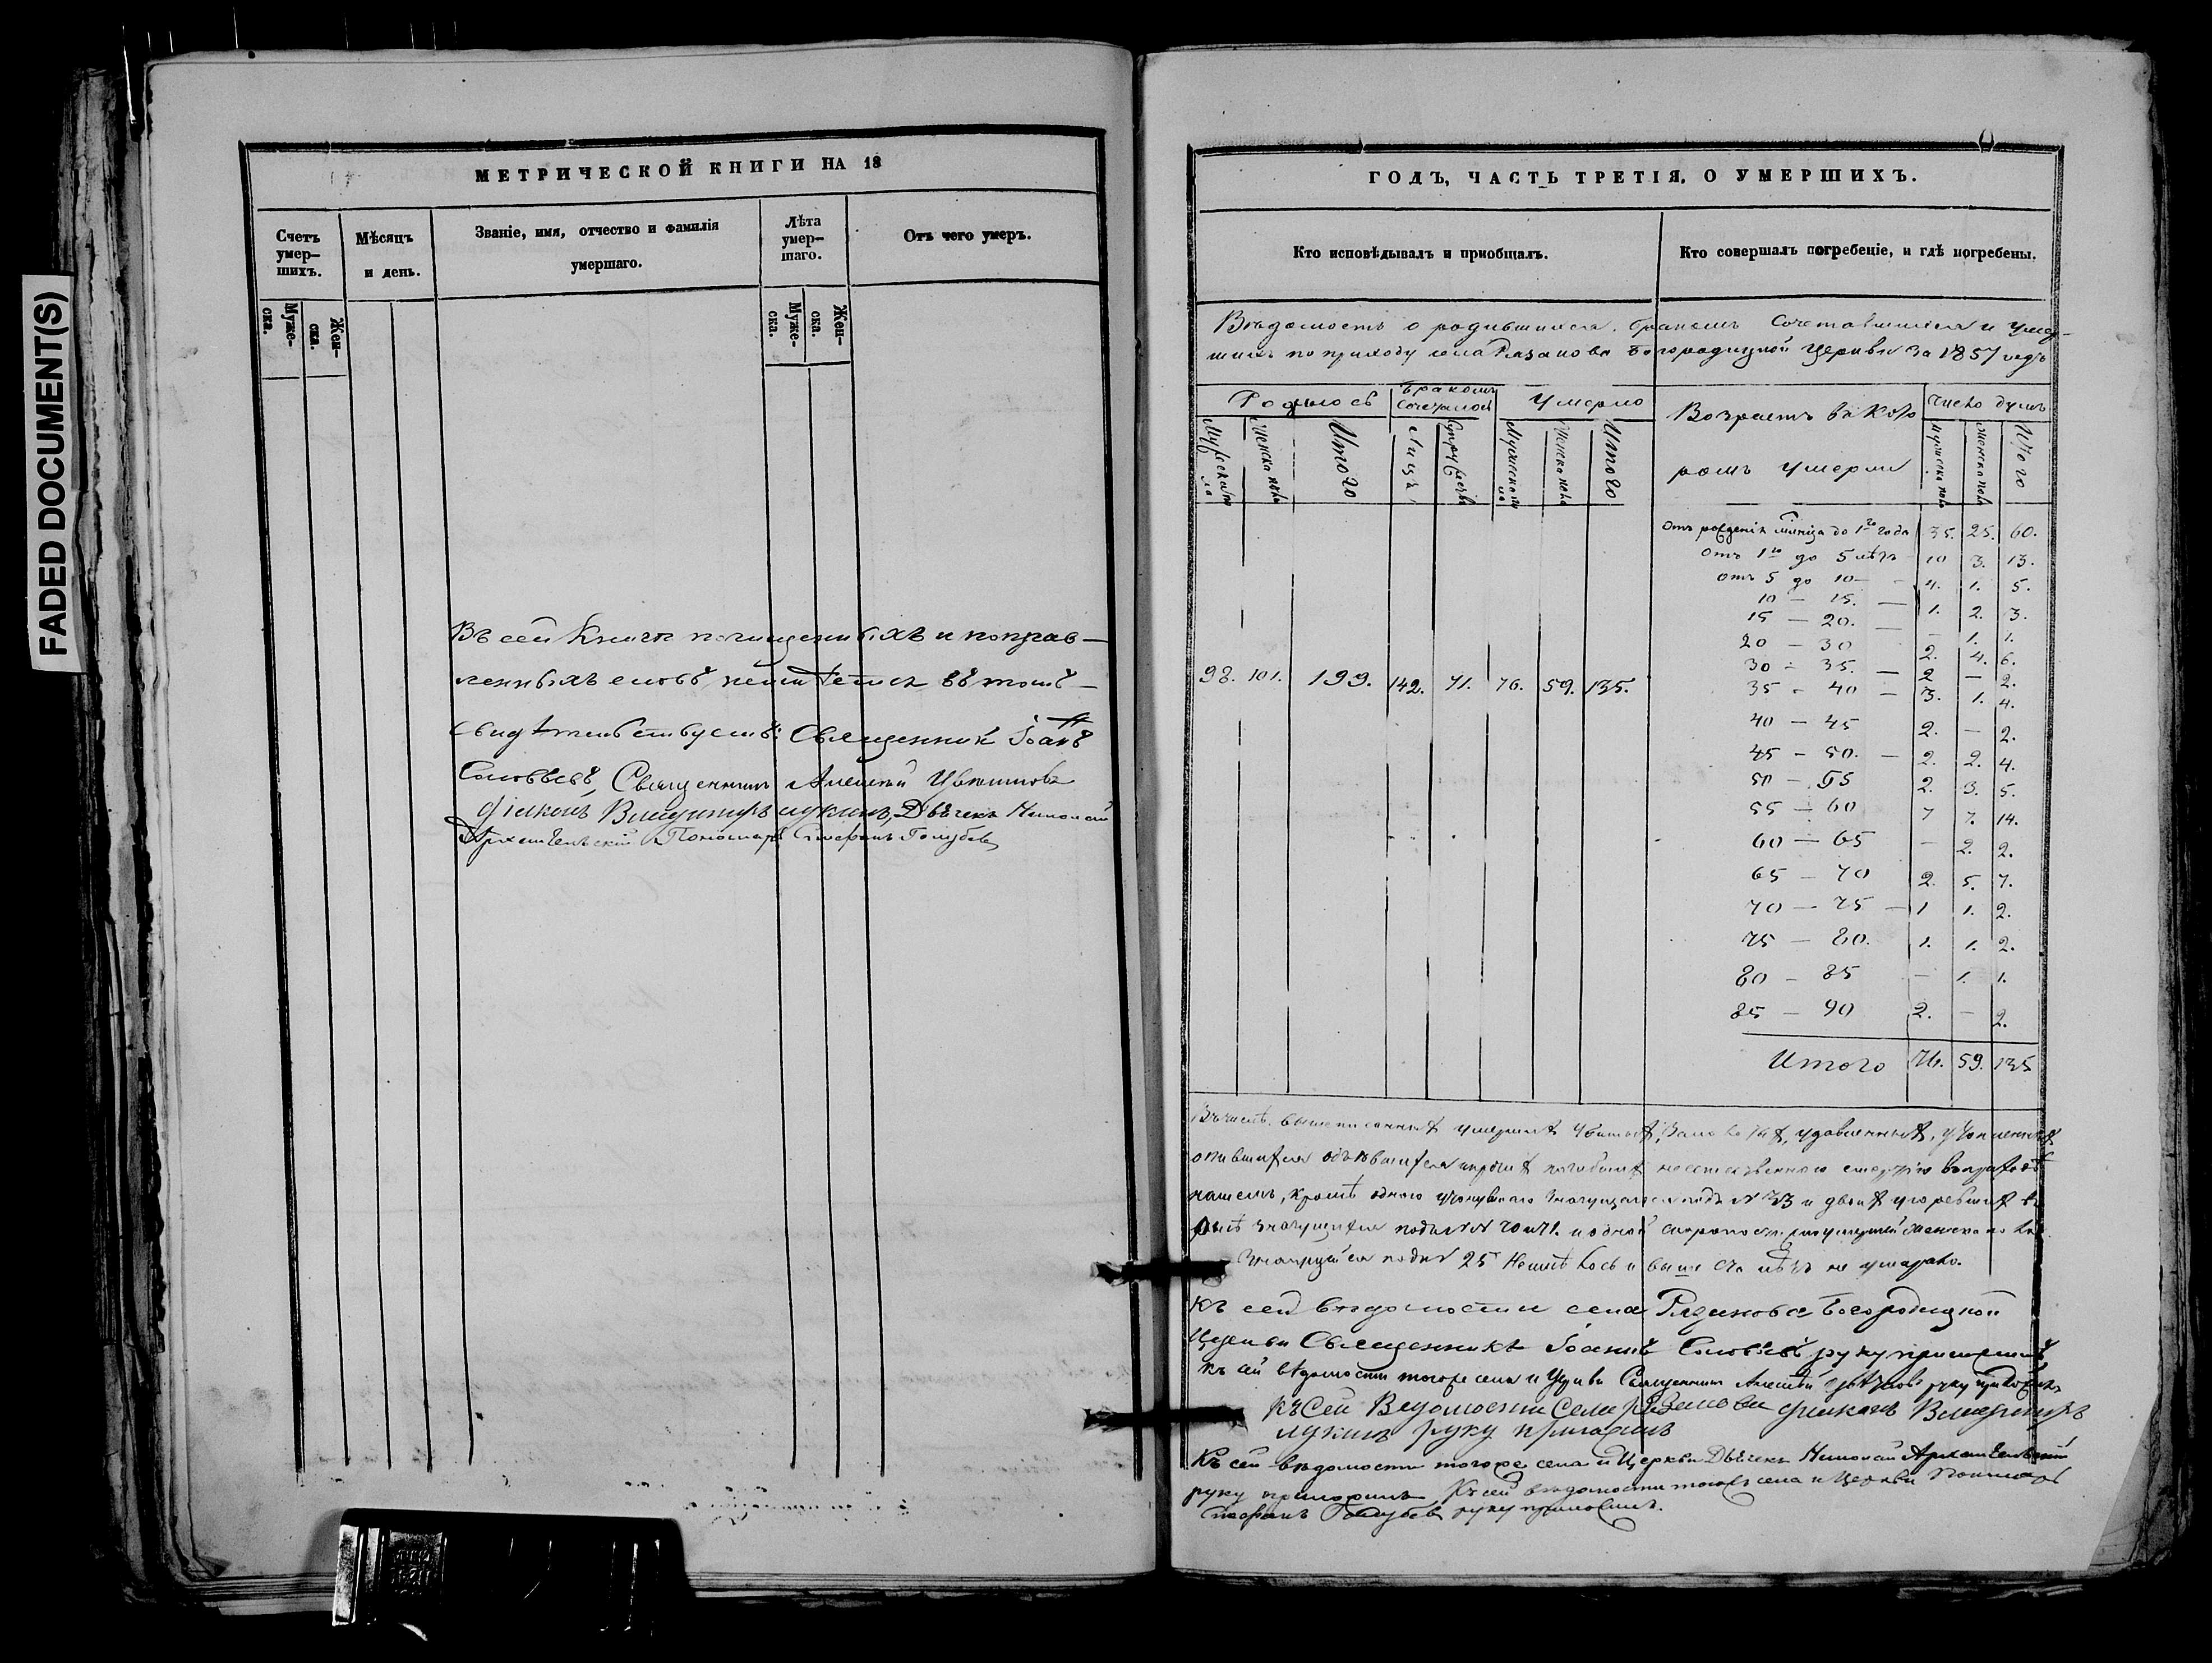 FADED DOCUMENT(S)
МЕТРИЧЕСКОЙ КНИГИ НА 18
Счетъ умер-шихъ.
Муже-ска.
Жен-ска.
Мѣсяцъ и день.
Званіе, имя, отчество и фамилія
умершаго.
Лѣта умер-шаго.
Муже-ска.
Жен-ска.
Отъ чего умеръ.
Въ сей Книгѣ почищенныхъ и поправ—
ленныхъ словъ неимѣется въ томъ—
свидѣтельствуемъ: Священникъ Іоаннъ
Соловьевъ, Священникъ Алексѣй Цвѣтковъ
Діаконъ Владиміръ Лукинъ, Дьячекъ Николай
Архангельскій Пономарь Стефанъ Голубевъ
ГОДЪ, ЧАСТЬ ТРЕТІЯ, О УМЕРШИХЪ.
Кто исповѣдывалъ и пріобщалъ.
Кто совершалъ погребеніе, и гдѣ погребены.
Вѣдомость о родившихся, бракомъ Сочетавшихся и умер-
шихъ по приходу села Рязанова Богородицкой Церкви за 1857 годъ
Родилось
Бракомъ Сочеталось
Умерло
Возрастъ въ кото
ромъ умерли
Число душъ
Мужеска пола
Женска пола
Итого
Лицъ
Супружествъ
Мужеска пола
Женска пола
Итого
Мужеска пола
Женска пола
Итого
98. 101. 199. 142. 71. 76. 59. 135.
Отъ рожденія до 1го года 35. 25. 60.
Отъ 1го до 5 лѣтъ 10 3. 13.
Отъ 5 до 10 — 4. 1. 5.
10 — 15. — 1. 2. 3.
15 — 20. — — 1. 1.
20 — 30 2. 4. 6.
30 — 35. — 2 — 2.
35 - 40 — 3. 1. 4.
40 — 45 2. — 2.
45 — 50. — 2. 2. 4.
50 — 55 2. 3. 5.
55 — 60 7 7. 14.
60 — 65 — 2. 2.
65 — 70 2. 5. 7.
70 — 75 — 1 1. 2.
75 — 80. 1. 1. 2.
80 — 85 — 1. 1.
85 — 90 2. — 2.
Итого 76. 59. 135
Въ числѣ вышеписанныхъ умершихъ убитыхъ, удавленныхъ,
опившихся объѣвшихся и прочихъ погибшихъ неестественною смертію въ приходѣ
нашемъ, кромѣ одного утонувшаго значущагося подъ № 33 и двоихъ угорѣвшихъ въ
значущихся подъ №№ 70 и 71. и одной скоропостижно умершей женска пола
значущейся подъ № 25 неимѣлось и выше ста лѣтъ не умирало.
Къ сей вѣдомости села Рязанова Богородицкой
Церкви Священникъ Іоаннъ Соловьевъ руку приложилъ
Къ сей вѣдомости тогоже села и Церкви Священникъ Алексѣй Цвѣтковъ руку приложилъ
Къ Сей Вѣдомости Села Рязанова Діаконъ Владиміръ
Лукинъ руку приложилъ
Къ сей вѣдомости тогоже села и Церкви Дьячекъ Николай Архангельскій
руку приложилъ Къ сей вѣдомости тогожъ села и Церкви Пономарь
Стефанъ Голубевъ руку приложилъ.